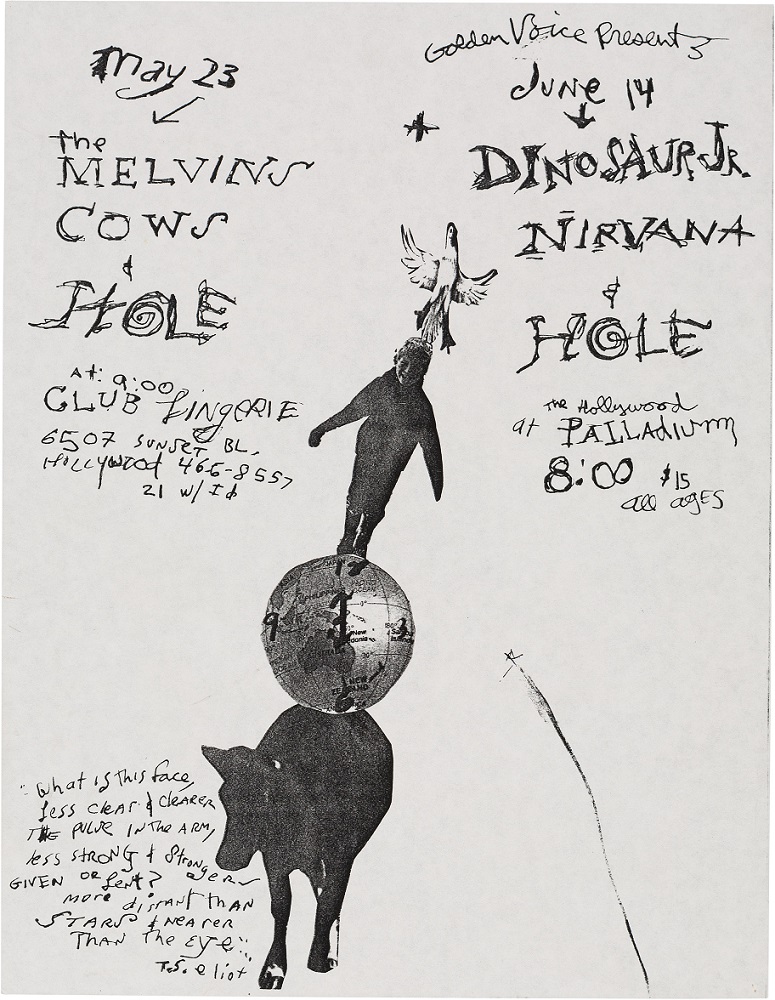 May 23
the
MELVINS
COWS
&
HOLE
At: 9:00
CLUB Lingerie
6507 SUNSET BL.
Hollywood 466-8557
21 w/ Id
GoldenVoice Presents
June 14
DINOSAUR JR.
NIRVANA
&
HOLE
The Hollywood
at PALLADIUM
8:00 $15
all ages
12
9
3
6
New
NEW
"What is this face,
less clear & clearer
THE PULSE IN THE ARM,
less STRONG & Stronger
GIVEN OR lent?
more distant than
STARS & nearer
THAN The eye"
T.S. eliot